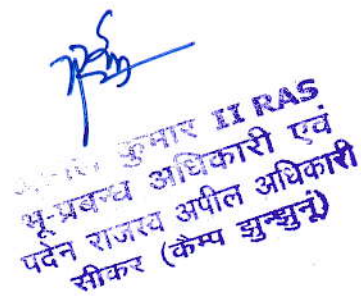 कुमार II RAS
भू-प्रबन्ध अधिकारी एवं
पदेन राजस्व अपील अधिकारी
सीकर (कैम्प झुन्झुनूं)